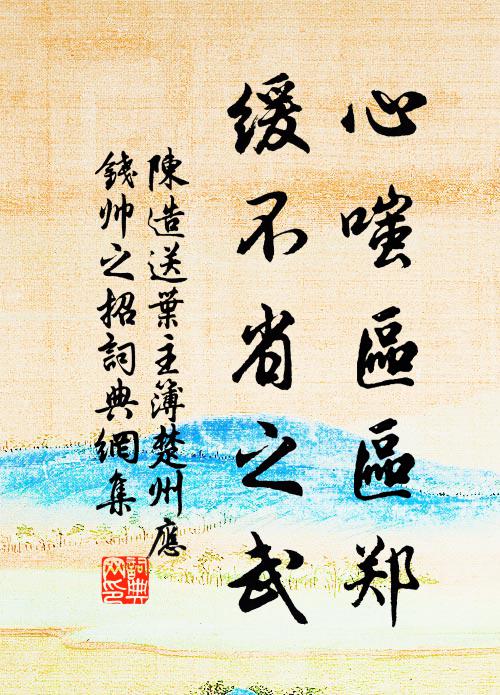 心嗤區區郑
緩不省之武
陳造送葉主簿楚州應
錢帅之招詞典網集
詞典
网印